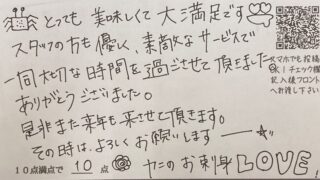 とっても 美味しくて 大満足です
スタッフの方も優しく、素敵なサービスで
一同大切な時間を過ごさせて頂きました
ありがとうございました。
是非また来年も来させて頂きます。
その時は、よろしくお願いします
スマホでも投稿
OK！チェック欄
記入後フロント
へお渡し下さい
10点満点で 10 点
カニのお刺身 LOVE!